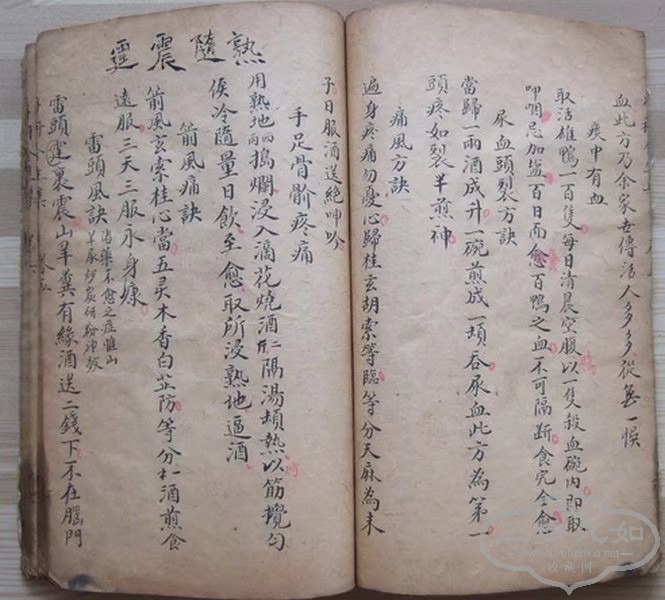 血此方乃余家世傳活人多多從無一悞
痰中有血
取活雄鴨一百隻每日清晨空腹以一隻殺血碗内即取
呷咽忌加盐百日而愈百鴨之血不可隔断食完全愈
尿血頭裂方訣
當歸一兩酒成升一碗煎成一頓吞尿血此方為第一
頭疼如裂半煎神
痛風方訣
遍身疼痛勿憂心歸桂玄胡索等臨等分天麻為末
子日服酒送絕呻吟
手足骨骱疼痛
用熟地四兩搗爛浸入滴花燒酒二斤隔湯頓熱以筋攪勻
俟冷隨量日飲至愈取所浸熟地逼酒
箭風痛訣
箭風玄索桂心當五灵木香白芷防等分扌酒煎食
遠服三天三服永身康
雷頭風訣
治藥不愈之症惟山
羊屎炒炭研
雷頭霆裏震山羊糞有緣酒送二錢下不在腦門
霆震隨熟
如
www.ruyeli.china.net